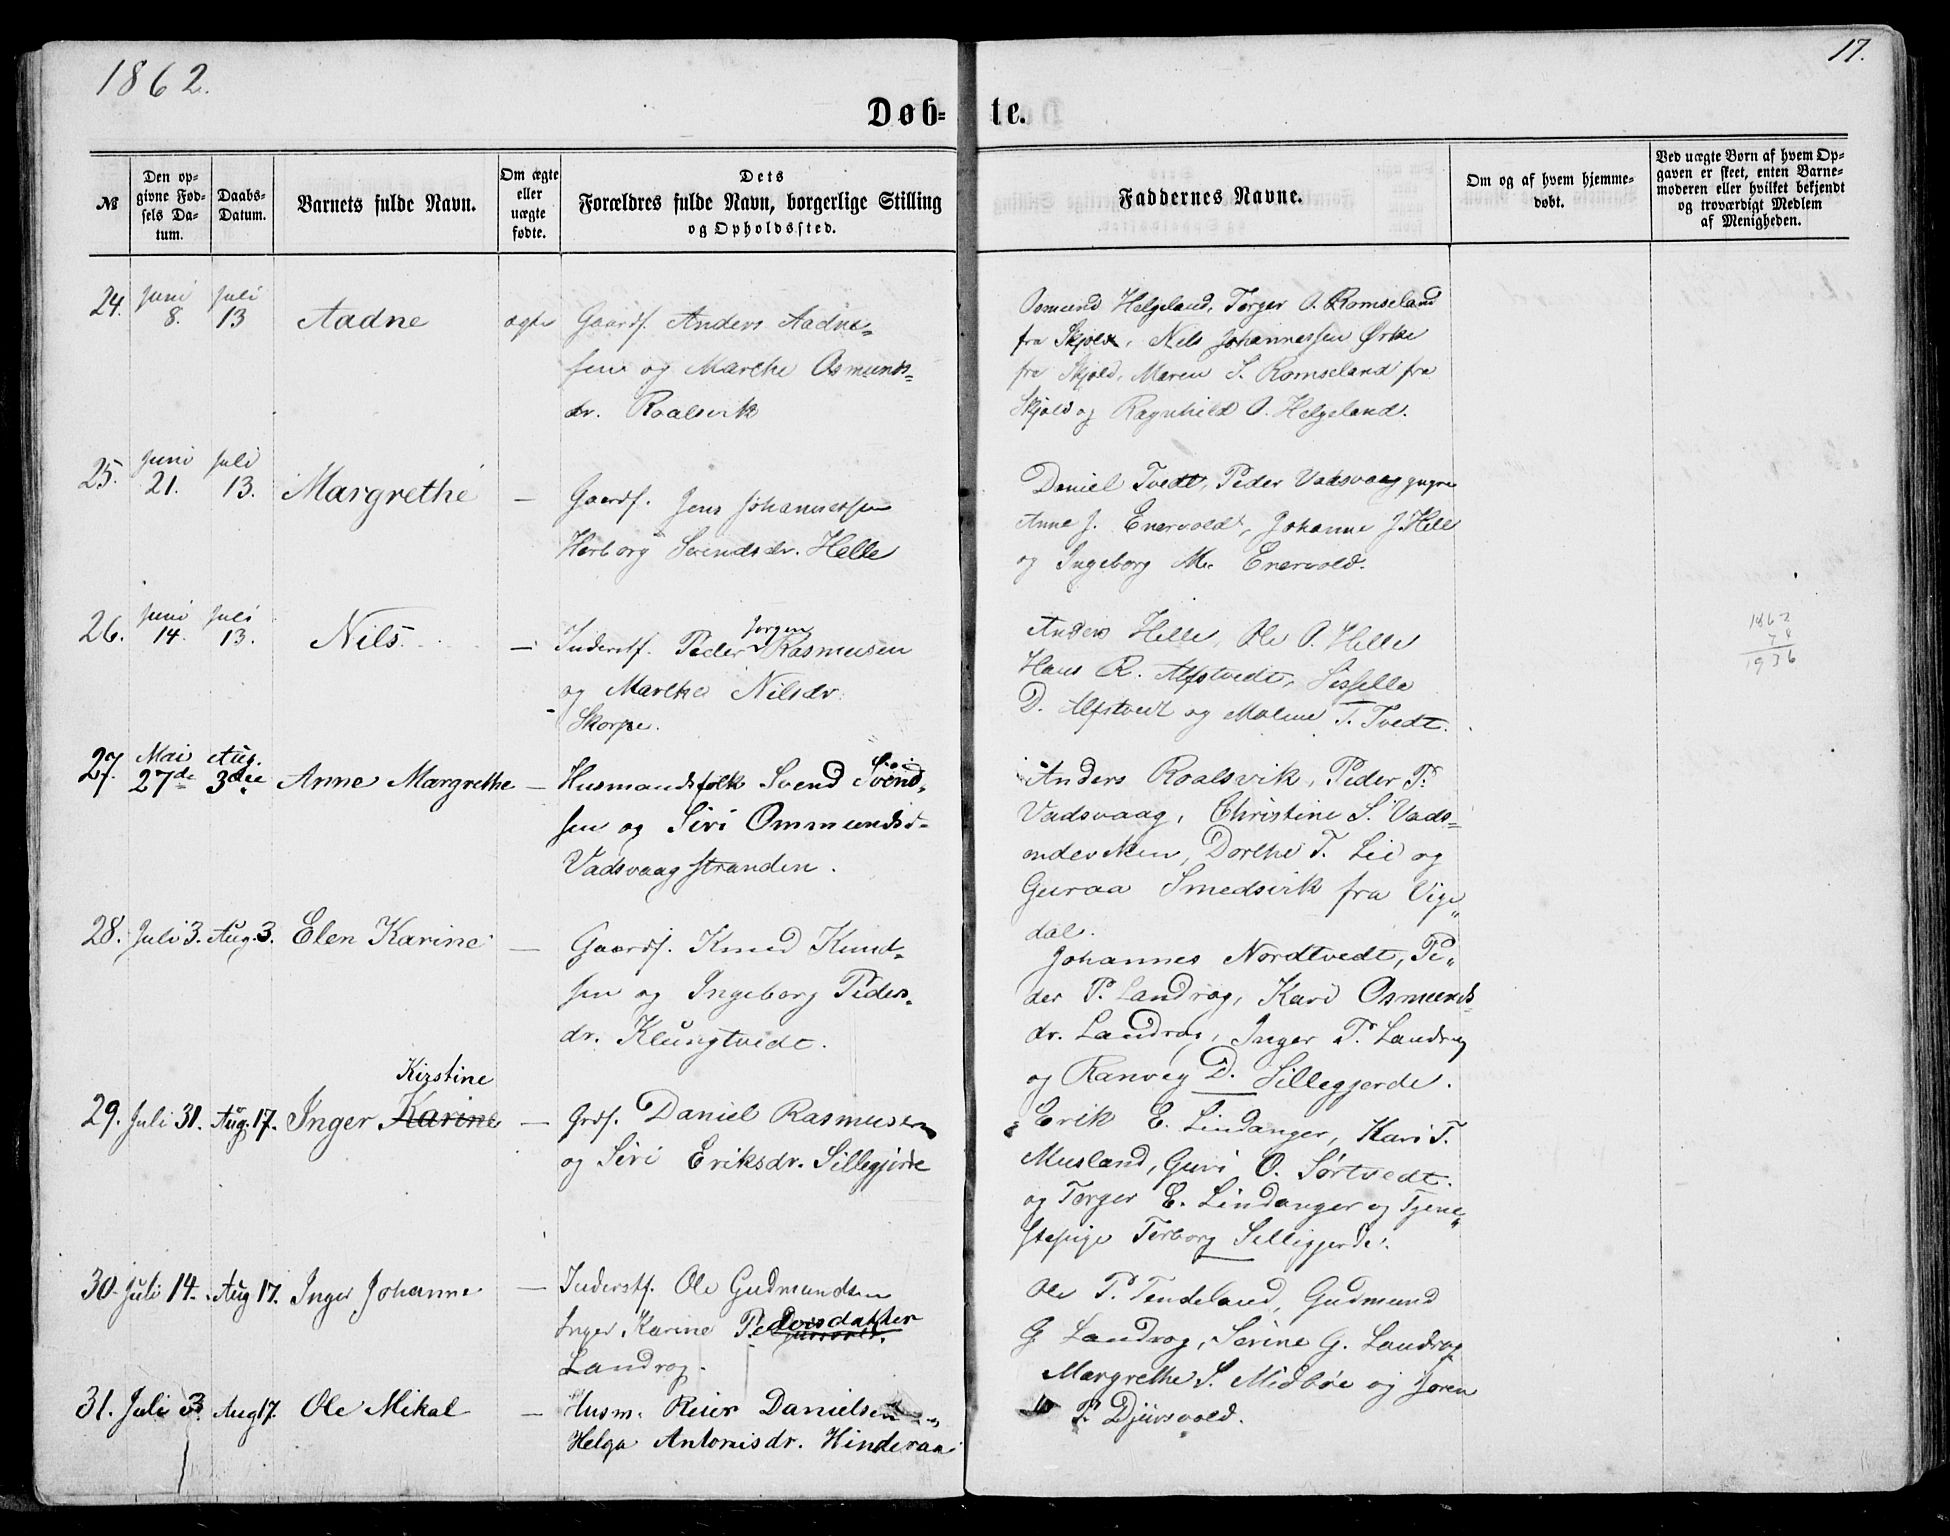 1862.
17.
Døb-
te.
№
Den op-
givne Fød-
sels Da-
tum.
Daabs-
Datum.
Barnets fulde Navn.
Om ægte
eller
uægte
fødte.
Dets
Forældres fulde Navn, borgerlige Stilling
og Opholdssted.
Faddernes Navne.
Om og af hvem hjemme-
døbt.
Ved uægte Børn af hvem Op-
gaven er skeet, enten Barne-
moderen eller hvilket bekjendt
og troværdigt Medlem
af Menigheden.
24. Juni 8. Juli 13 Aadne ægte
Gaardf. Anders Aadne-
sen og Marthe Osmunds-
dr. Roalsvik
Osmund Helgeland, Torger O. Romseland
fra Skjold, Nels Johannessen Ørke
fra Skjold, Maren S. Romseland fra
Skjold og Ragnhild O. Helgeland.
25. Juni 21. Juli 13. Margrethe —
Gaardf. Jens Johannessen
Herborg Svendsdr. Helle
Daniel Tvedt, Peder Vadsvaag yngre
Anne J. Enervold, Johanne J. Helle
og Ingeborg M. Enervold.
26. Juni 14. Juli 13. Nils —
Jørgen
Inderstf. Peder Rasmusen
og Marthe Nilsdr.
Skorpe.
Anders Helle, Ole O. Helle
Hans R. Alfstvedt, Sisselle
D. Alfstvedt og Malene T. Tvedt.
1862
74
1936
27. Mai 27de Aug. 3die Anne Margrethe —
Husmandsfolk Svend Svend-
sen og Siri Ommundsd-
Vadsvaagstranden.
Anders Roalsvik, Peder P.
Vadsvaag, Christine S. Vads-
ondeviken, Dorthe T. Lie og
Guroa Smedsvik fra Vige-
dal.
28. Juli 3. Aug. 3. Elen Karine —
Gaardf. Knud Knud-
sen og Ingeborg Peders-
dr. Klungtvedt.
Johannes Nordtvedt, Pe-
der P. Landrog, Kari Osmunds-
dr. Landrog, Inger P. Landrog
og Ranveg D. Sillegjerde.
Kirstine
29. Juli 31. Aug. 17. Inger Karine —
Grdf. Daniel Rasmusen
og Siri Eriksdr. Sillegjerde
Erik E. Lindanger, Kari T.
Musland, Guri O. Sørtvedt.
og Torger E. Lindanger og Tjene-
stepige Torborg Sillegjerde.
30. Juli 14. Aug 17. Inger Johanne —
Inderstf. Ole Gudmundsen
Inger Karine Pedersdatter
Landrog.
Ole P. Tendeland, Gudmund
G Landrog, Serine G. Landrog
Margrethe S. Midbøe og Joren
P. Djursvold.
31. Juli 3. Aug 17. Ole Mikal —
Husm. Reier Danielsen
Helga Antonisdr. Hinderaa